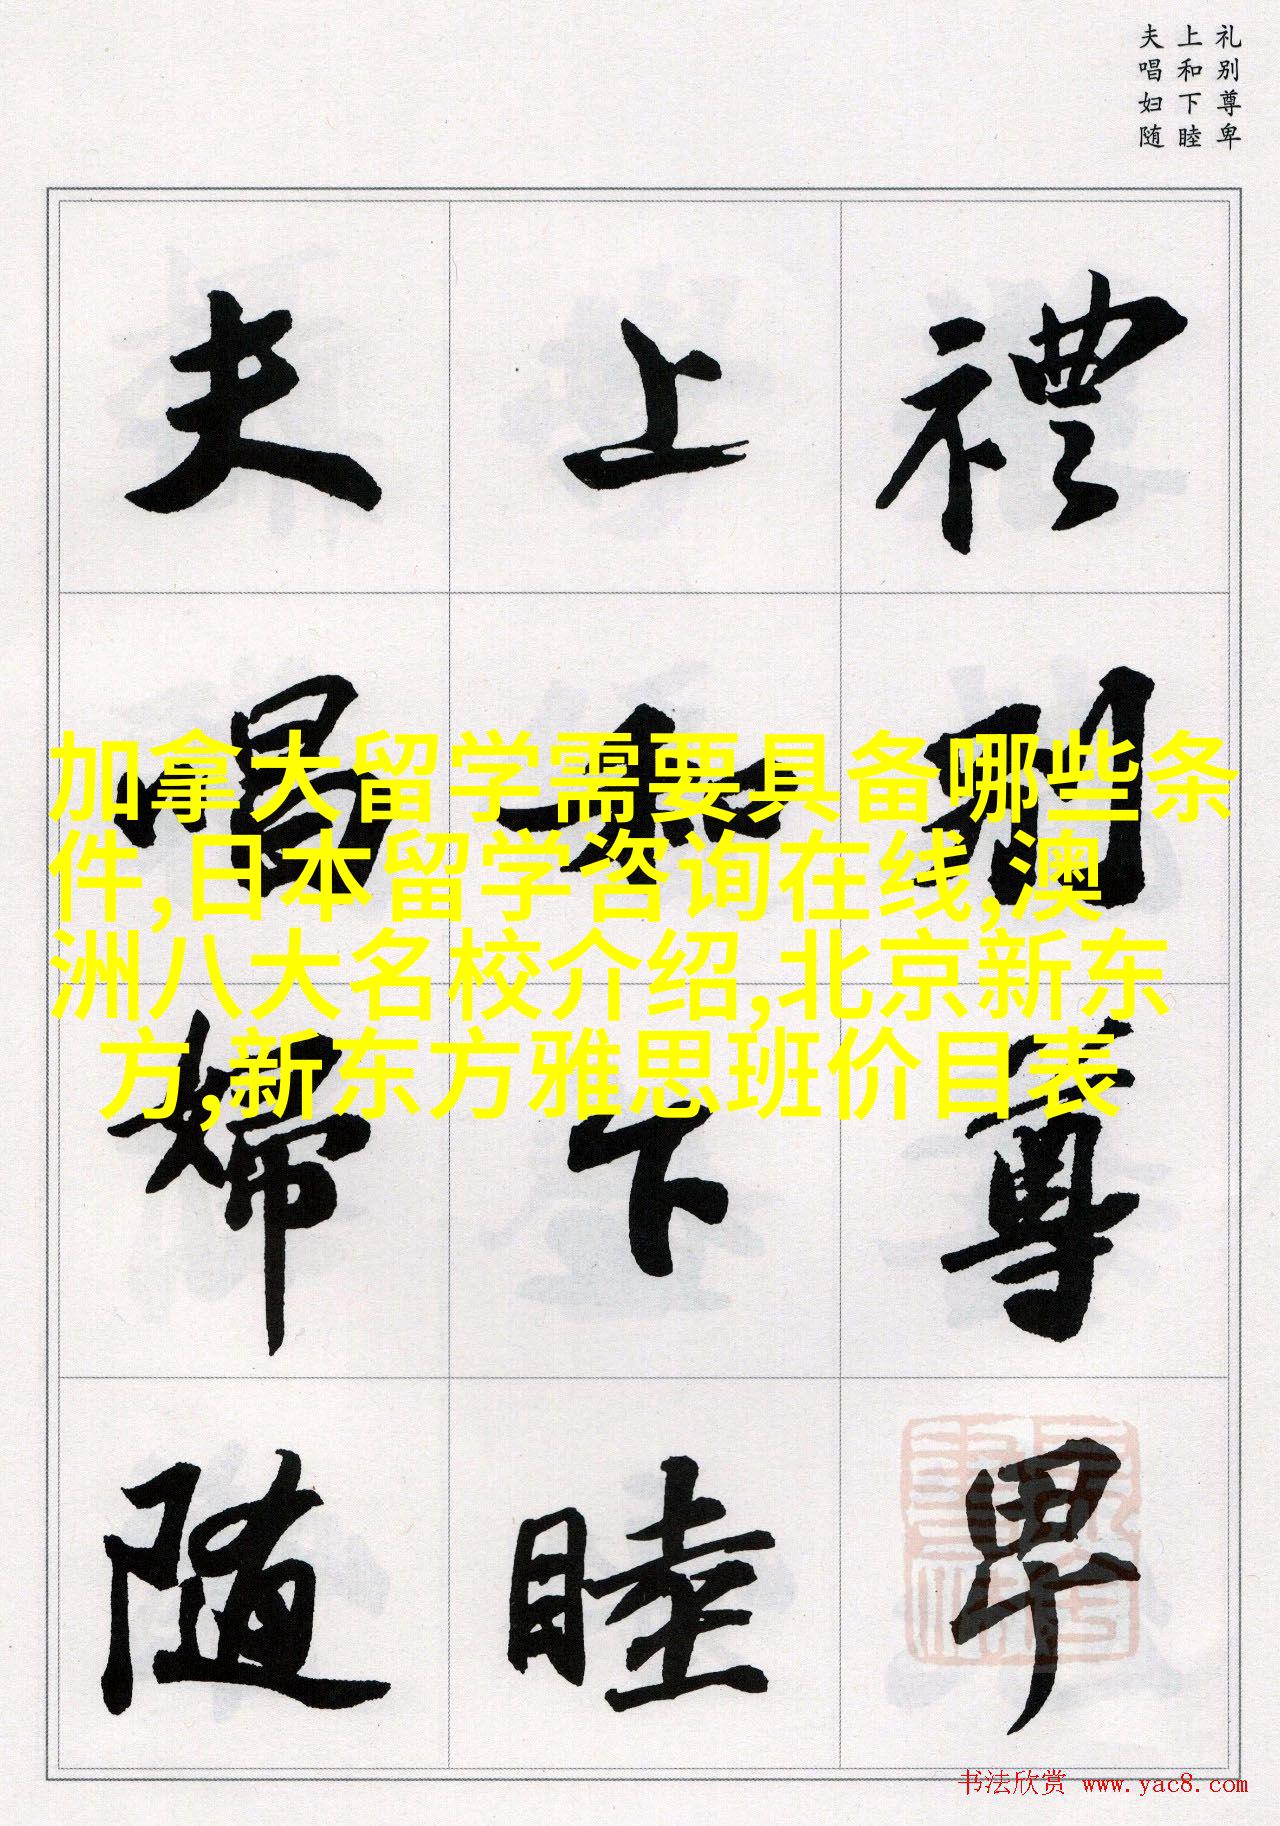 礼别尊卑
上和下睦
夫唱妇随
禮別尊卑
上和下睦
夫唱婦随
加拿大留学需要具备哪些条
件,日本留学咨询在线,澳
洲八大名校介绍,北京新东
方,新东方雅思班价目表
书法欣赏 www.yac8.com